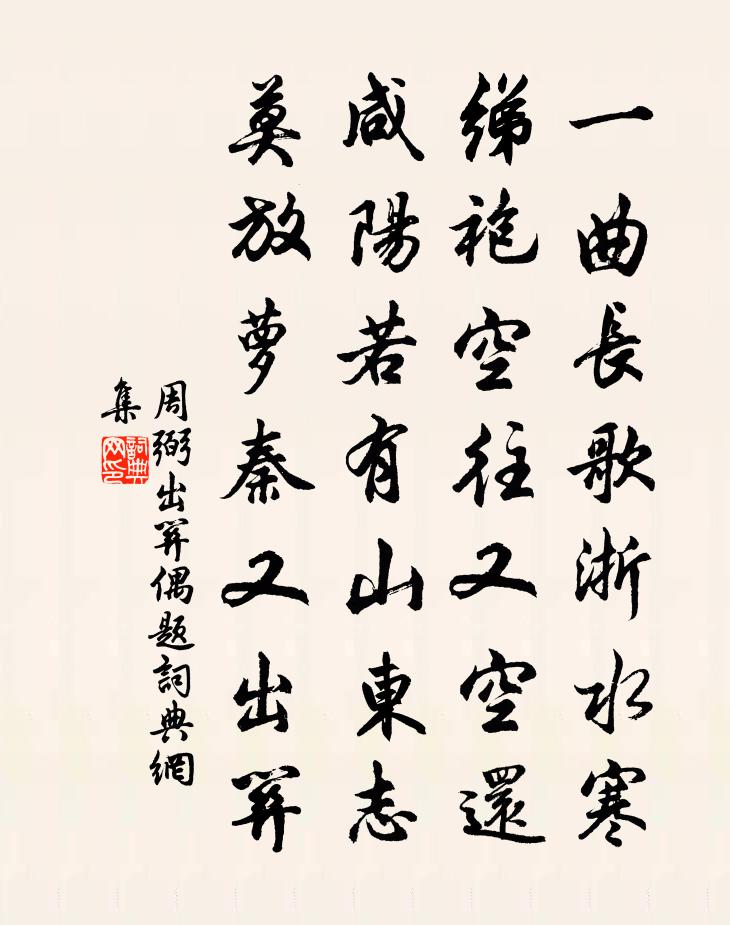 一曲長歌淅水寒
綈袍空往又空還
咸陽若有山東志
莫放夢秦又出關
周弼出關偶題詞典網
集
詞典网印